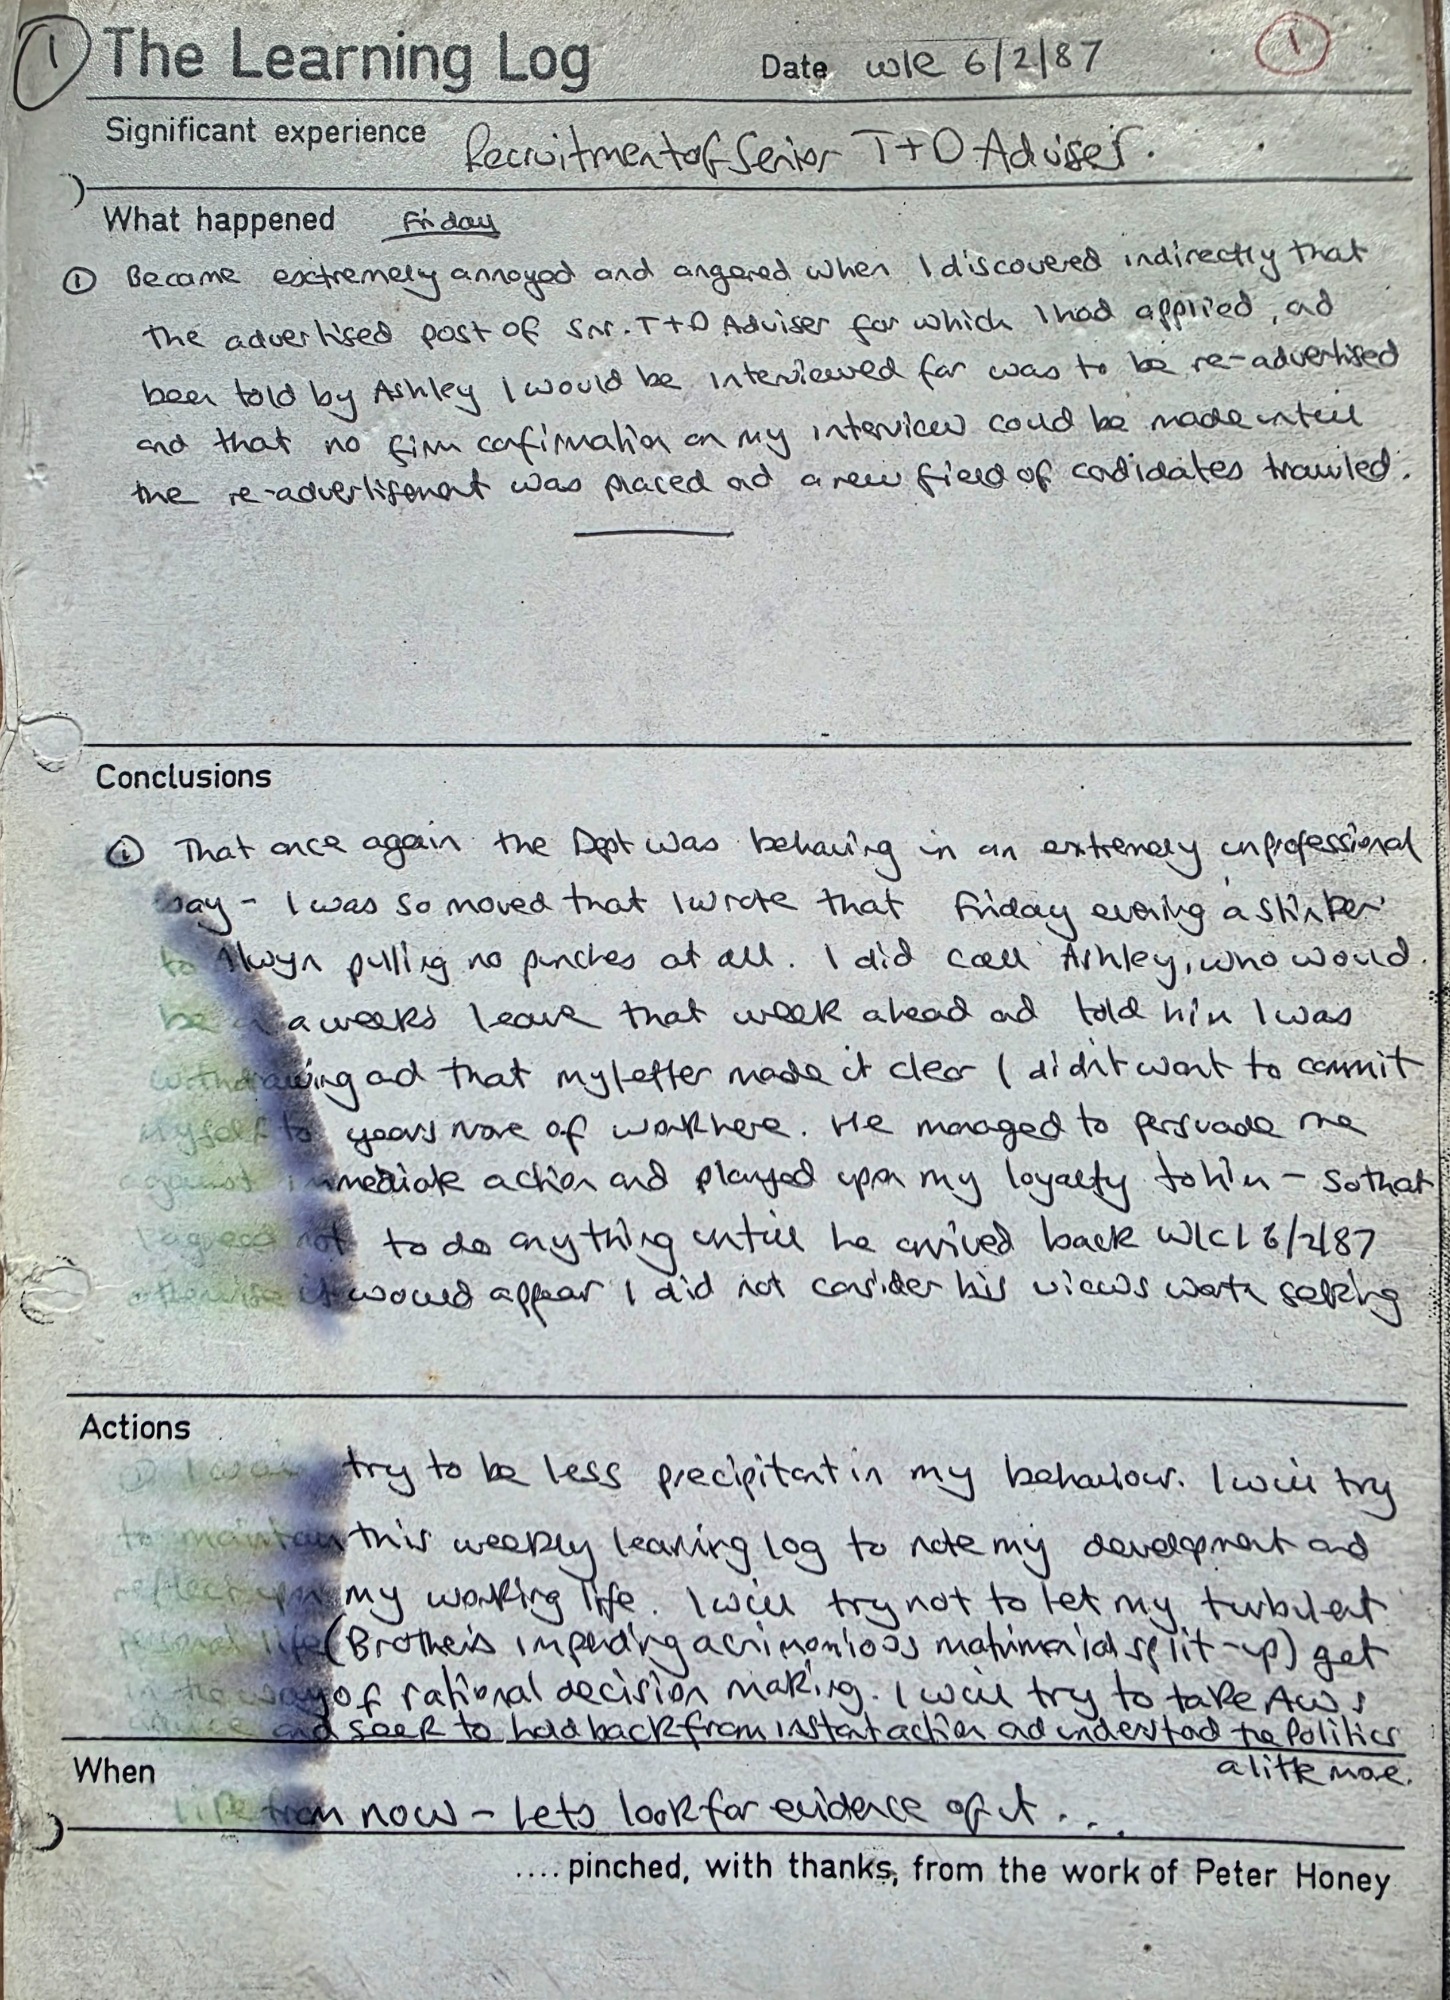 1 The Learning Log Date w/e 6/2/87 1
Significant experience Recruitment of Senior T+D Adviser.
What happened Friday
① Became extremely annoyed and angered when I discovered indirectly that
the advertised post of Snr. T+D Adviser for which I had applied, ad
been told by Ashley I would be interviewed for was to be re-advertised
and that no firm confirmation on my interview could be made until
the re-advertisement was placed ad a new field of candidates trawled.
Conclusions
① That once again the Dept was behaving in an extremely unprofessional
way - I was so moved that I wrote that Friday evening a 'stinker'
to Alwyn pulling no punches at all. I did call Ashley, who would
be a weeks leave that week ahead ad told him I was
withdrawing ad that my letter made it clear I didn't want to commit
myself to years more of work here. He managed to persuade me
against immediate action and played upon my loyalty to him - so that
I agreed not to do anything until he arrived back
otherwise it would appear I did not consider his views worth seeking
Actions
① I will try to be less precipitant in my behaviour. I will try
to maintain this weekly learning log to note my development and
reflect upon my working life. I will try not to let my turbulent
personal life (Brother's impending acrimonious matrimonial split-up) get
in the way of rational decision making. I will try to take AW's
advice and seek to hold back from instant action ad understad the Politics
a little more.
When
from now - lets look for evidence of it ...
.... pinched, with thanks, from the work of Peter Honey